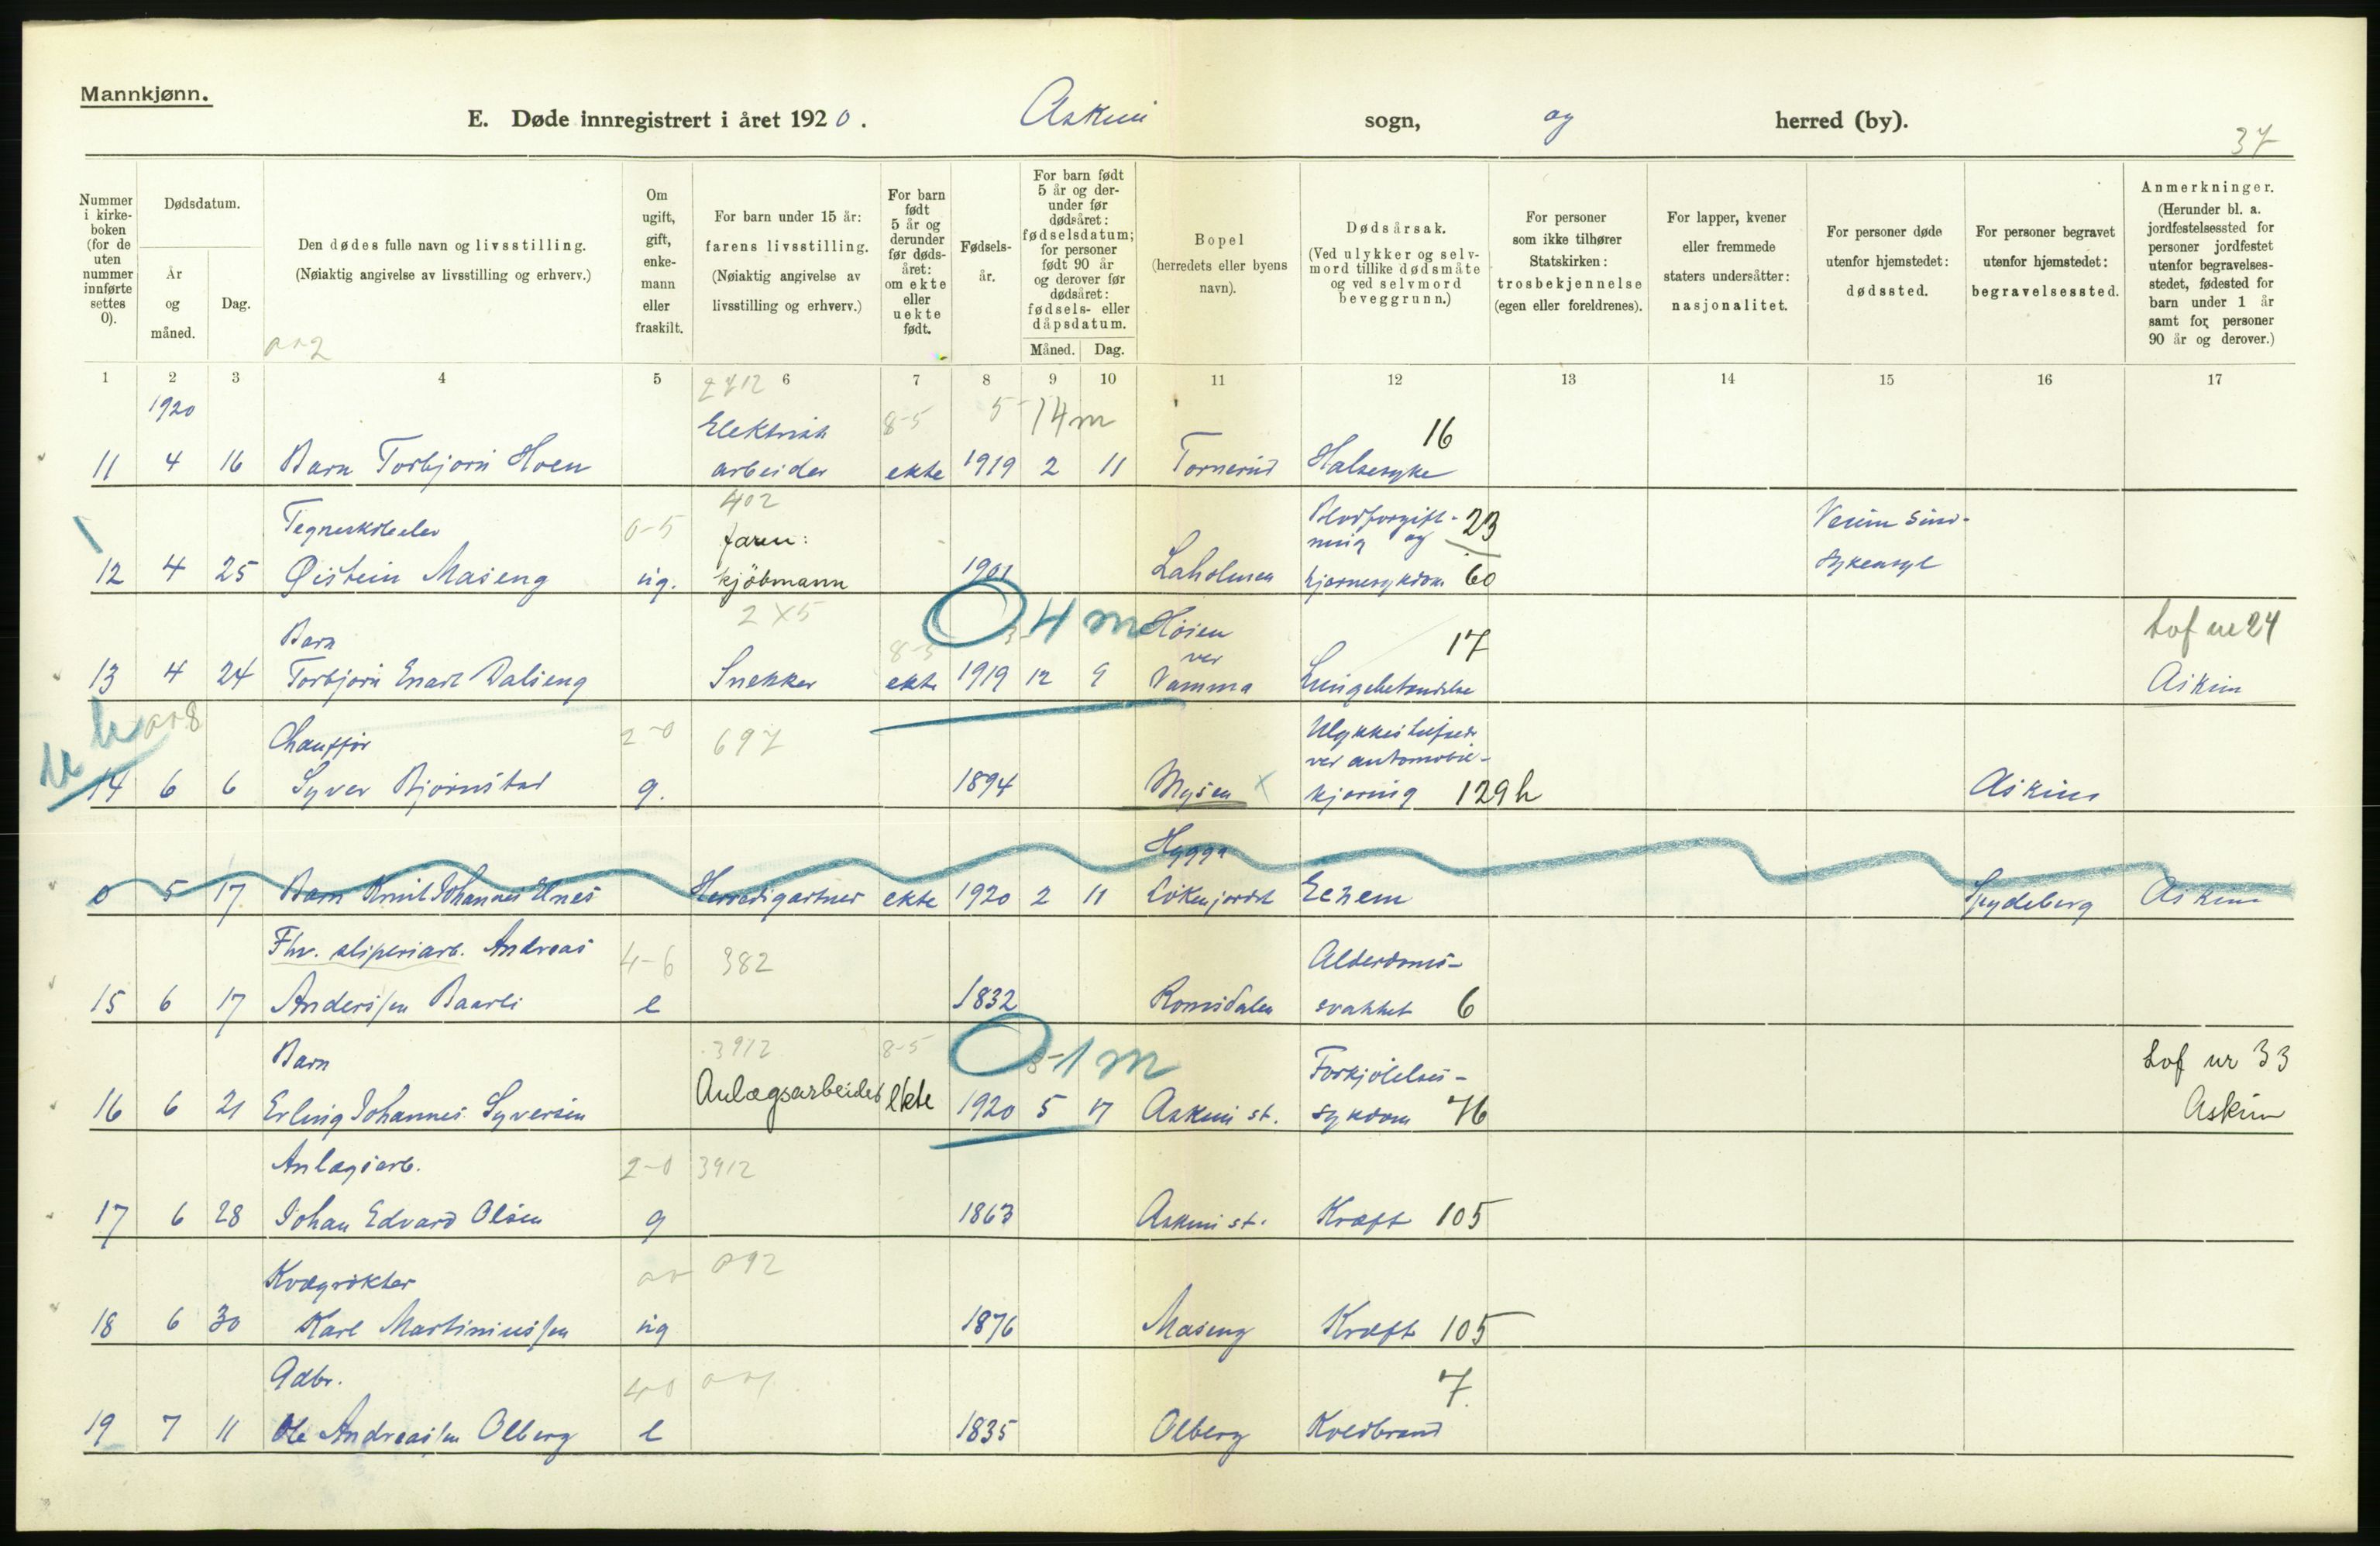 Mannkjønn.
E. Døde innregistrert i året 1920. Askim sogn, og herred (by).
37
Nummer i kirkeboken (for de uten nummer innførte settes 0).
Dødsdatum.
År og måned.
Dag.
Den dødes fulle navn og livsstilling.
(Nøiaktig angivelse av livsstilling og erhverv.)
Om ugift, gift, enkemann eller fraskilt.
For barn under 15 år: farens livsstilling.
(Nøiaktig angivelse av livsstilling og erhverv.)
For barn født 5 år og derunder før dødsåret: om ekte eller uekte født.
Fødselsår.
For barn født 5 år og derunder før dødsåret: fødselsdatum; for personer født 90 år og derover før dødsåret: fødsels- eller dåpsdatum.
Måned. Dag.
Bopel
(herredets eller byens navn).
Dødsårsak.
(Ved ulykker og selvmord tillike dødsmåte og ved selvmord beveggrunn.)
For personer som ikke tilhører Statskirken: trosbekjennelse (egen eller foreldrenes).
For lapper, kvener eller fremmede staters undersåtter: nasjonalitet.
For personer døde utenfor hjemstedet: dødssted.
For personer begravet utenfor hjemstedet: begravelsessted.
Anmerkninger.
(Herunder bl. a. jordfestelsessted for personer jordfestet utenfor begravelsesstedet, fødested for barn under 1 år samt for personer 90 år og derover.)
1 2 3 4 5 6 7 8 9 10 11 12 13 14 15 16 17
1920
2712
Elektrisk 8-5 5- 14 m 16
11 4 16 Barn Torbjørn Hoen arbeider ekte 1919 2 11 Tornerud Halsesyke
402
Tegneskoleelev 0-5 faren: Blodforgift- 23 Veum Sind-
ning og
12 4 25 Øistein Maseng ug. kjöbmann 1901 Laholmen hjernesykdom 60 sykeasyl
2x5
Barn 8-5 4 m Høien 17 Lof nr 24
ved
13 4 24 Torbjørn Enart Dalseng Snekker ekte 1919 12 9 Vamma Lungebetendelse Askim
Chauffør 2-0 697 Ulykkestilfælde
ved automobil-
14 6 6 Syver Bjørnstad g. 1894 Mysen x kjøring 129h Askim
Hygga
0 5 17 Barn Knut Johannes Elnes Herredsgartner ekte 1920 2 11 Løkenjordet Eczem Spydeberg Askim
Fhv. sliperiarb. Andreas 4-6 382 Alderdoms-
15 6 17 Anderssen Baarli e 1832 Romsdalen svakhet 6
Barn 3912 8-5 1 m Forkjølelses- Lof nr 33
Anlægsarbeider ekte
16 6 21 Erling Johannes Syversen 1920 5 17 Askim st. sykdom 76 Askim
Anlægsarb. 2-0 3912
17 6 28 Johan Edvard Olsen g 1863 Askim st. Kræft 105
Kvægrøkter
18 6 30 Karl Martiniussen ug 1876 Maseng Kræft 105
Gdbr. 4-0 7
19 7 11 Ole Andreassen Olberg e 1835 Olberg Koldbrand